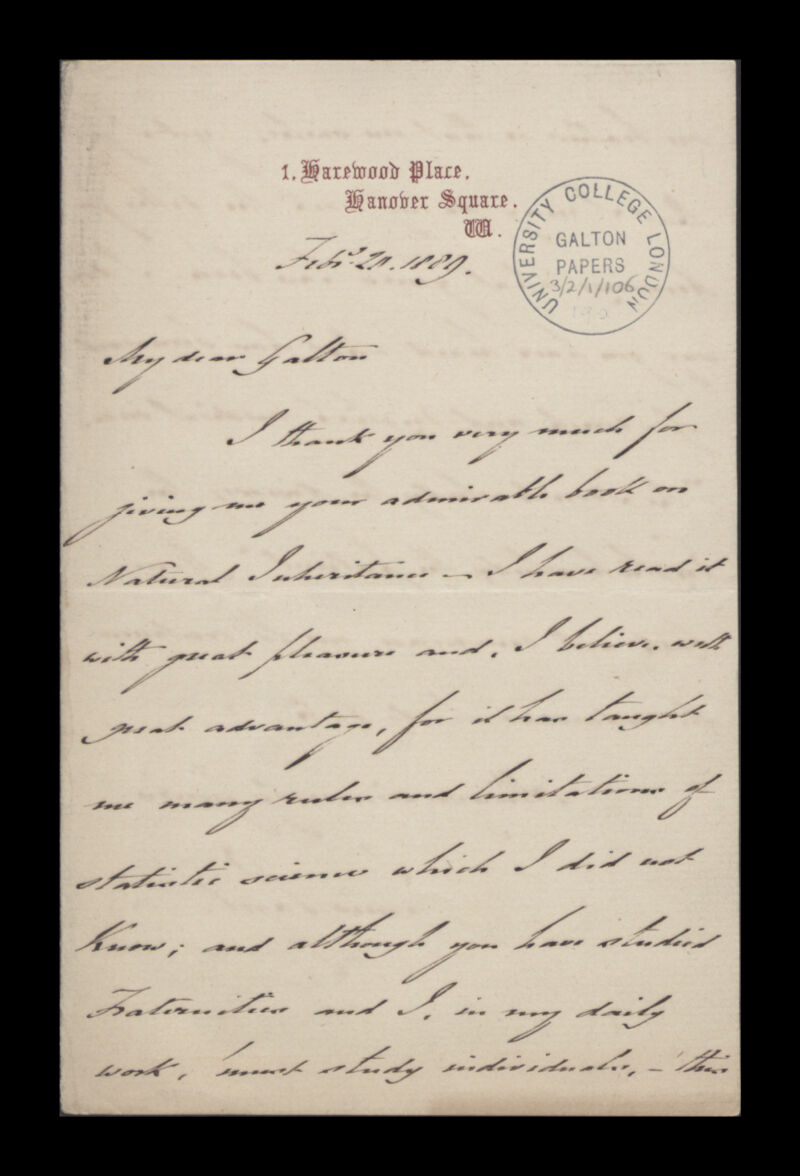 1, Harewood Place,
Hanover Square,
W.
Feby. 20. 1889.
UNIVERSITY COLLEGE LONDON
GALTON
PAPERS
3/2/1/106
My dear Galton
I thank you very much for
giving me your admirable book on
Natural Inheritance – I have read it
with great pleasure and, I believe, with
great advantage, for it has taught
me many rules and limitations of
statistic science which I did not
know; and although you have studied
Fraternities and I, in my daily
work, must study individuals, – this